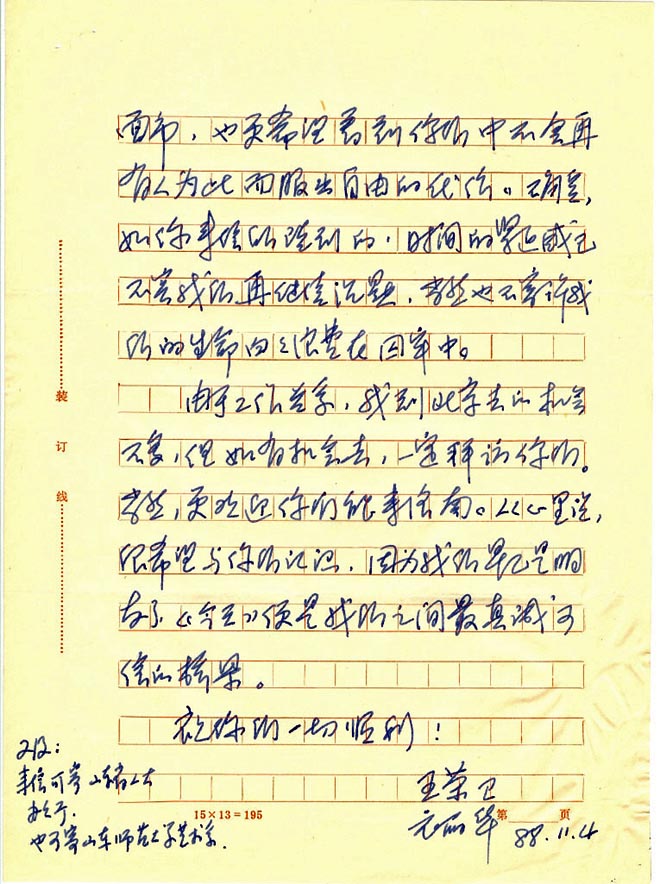 面市，也更希望看到你们中不会再
有人为此而服出自由的代价。不用说，
如你来信所谈到的，时间的紧迫感已
不容我们再继续沉默，当然也不容许我
们的生命白白浪费在回牢中。
由于工作关系，我到北京去的机会
不多，但如有机会去，一定拜访你们。
当然，更欢迎你们能来济南。从心里说，
很希望与你们认识，因为我们早已是朋
友了。《今天》便是我们之间最真诚可
信的桥梁。
祝你们一切顺利！
王荣卫
丽华
88.11.4
又及：
来信可寄山东省人大
办公厅.
也可寄山东师范大学艺术系.
装
订
线
15×13＝195
第
页